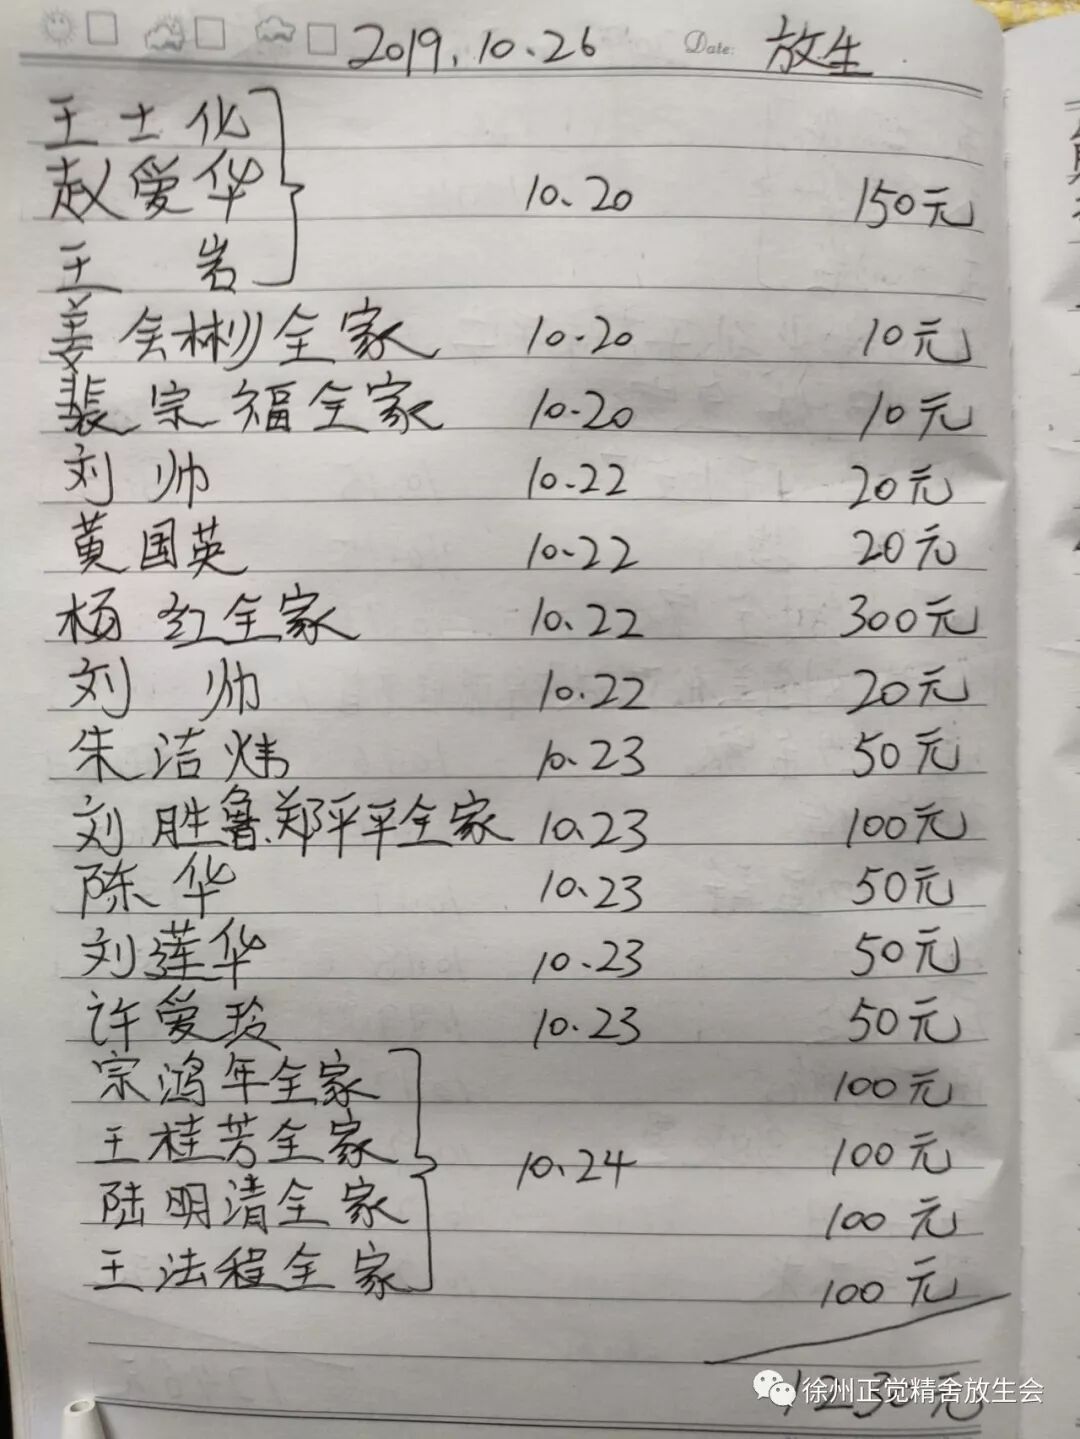 2019.10.26 Date: 放生
王士化
赵爱华 10.20 150元
王岩
姜会彬全家 10.20 10元
裴宗福全家 10.20 10元
刘帅 10.22 20元
黄国英 10.22 20元
杨红全家 10.22 300元
刘帅 10.22 20元
朱洁炜 10.23 50元
刘胜鲁.郑平平全家 10.23 100元
陈华 10.23 50元
刘莲华 10.23 50元
许爱玲 10.23 50元
宗鸿年全家 100元
王桂芳全家 10.24 100元
陆明清全家 100元
王法程全家 100元
1230元
徐州正觉精舍放生会